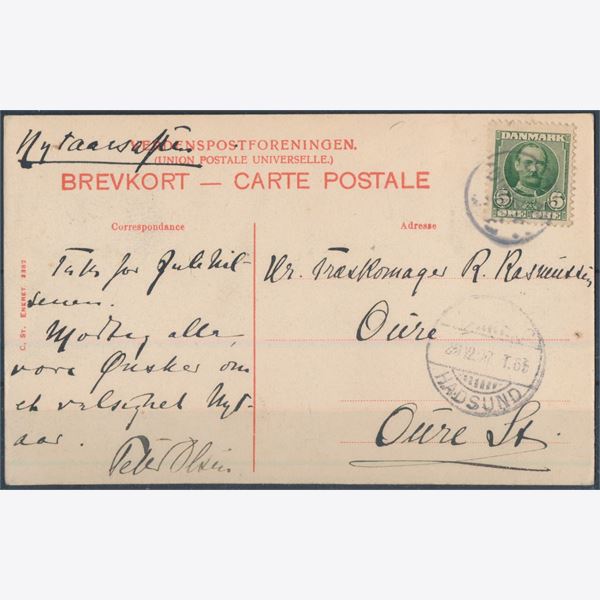 Nytaarsaften
VERDENSPOSTFORENINGEN.
(UNION POSTALE UNIVERSELLE.)
BREVKORT — CARTE POSTALE
DANMARK
5 5
ØRE ØRE
Correspondance
Adresse
C. St. Eneret 2382
Tak for Julehil-
senen.
Modtag alle
vore Ønsker om
et velsignet Nyt-
aar.
Peter Olsen
Hr. Træskomager R. Rasmussen
Oure
Oure St.
HADSUND